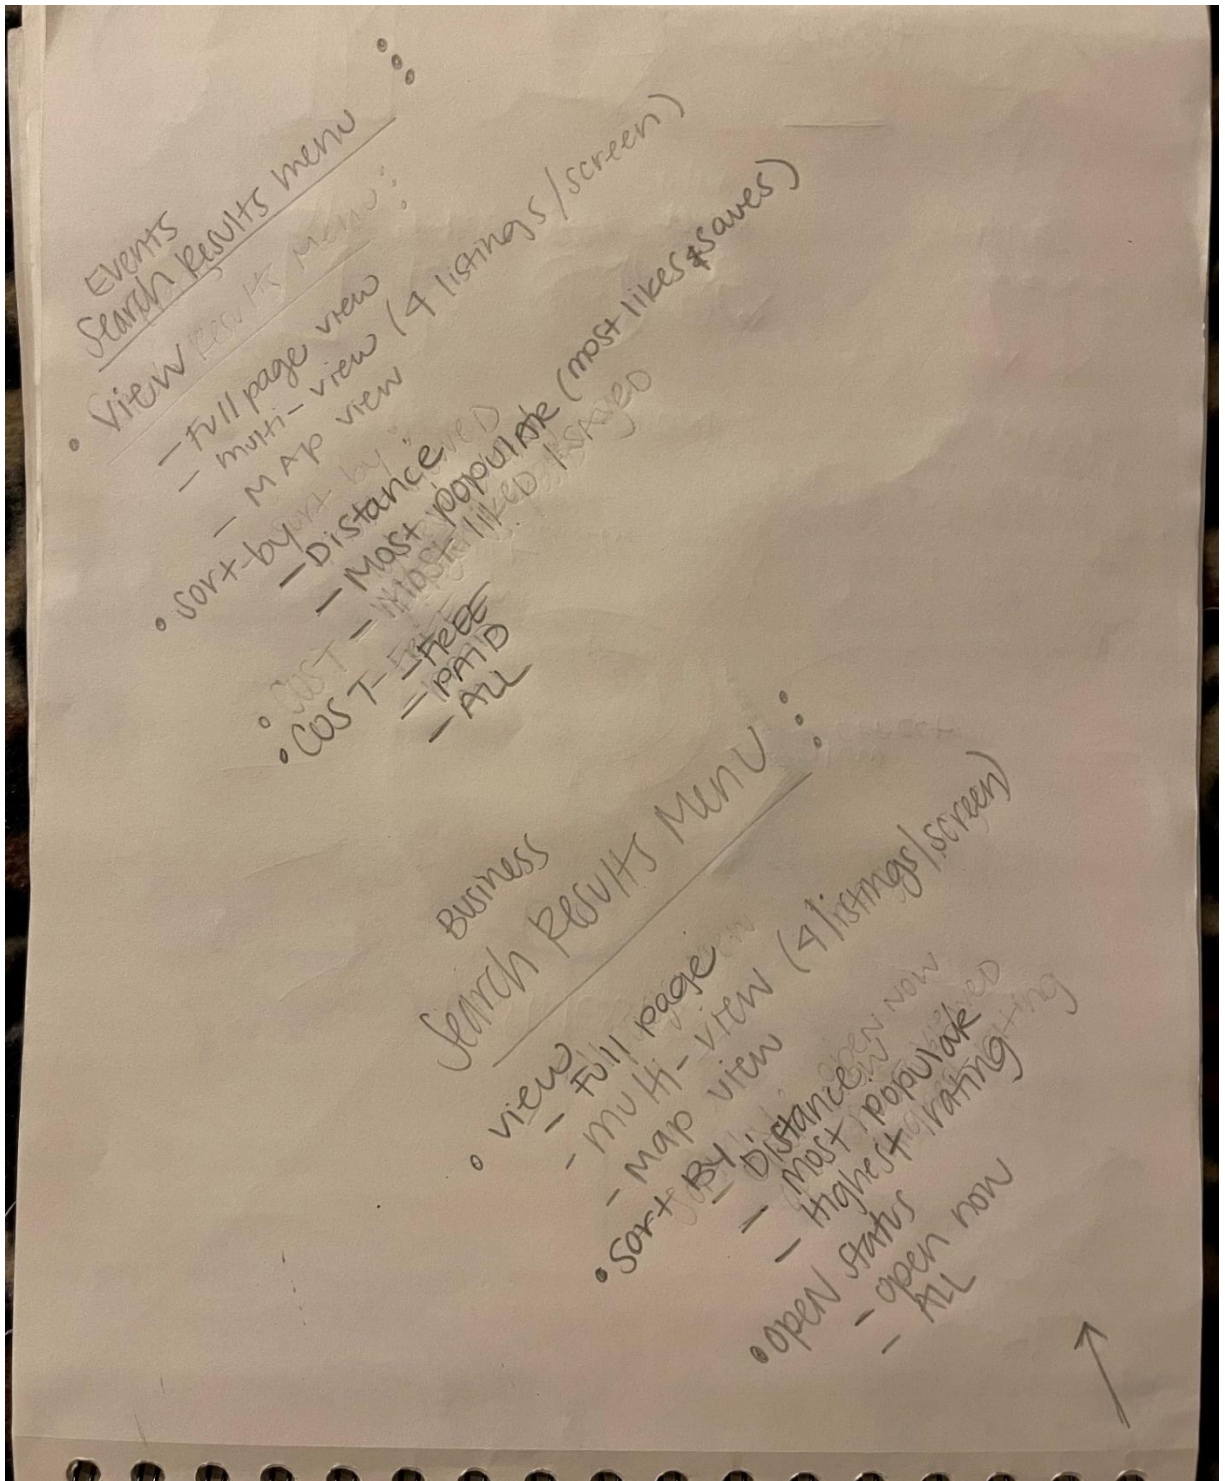 Events
Search Results menu
• View
- Full page view
- multi-view (4 listings/screen)
- MAP view
• Sort by
- Distance
- Most popular (most likes & saves)
• COST
- FREE
- PAID
- ALL
Business
Search Results Menu
• view
- Full page
- multi-view (4 listings/screen)
- Map view
• Sort By
- Distance
- Most popular
- Highest rating
• open status
- open now
- ALL